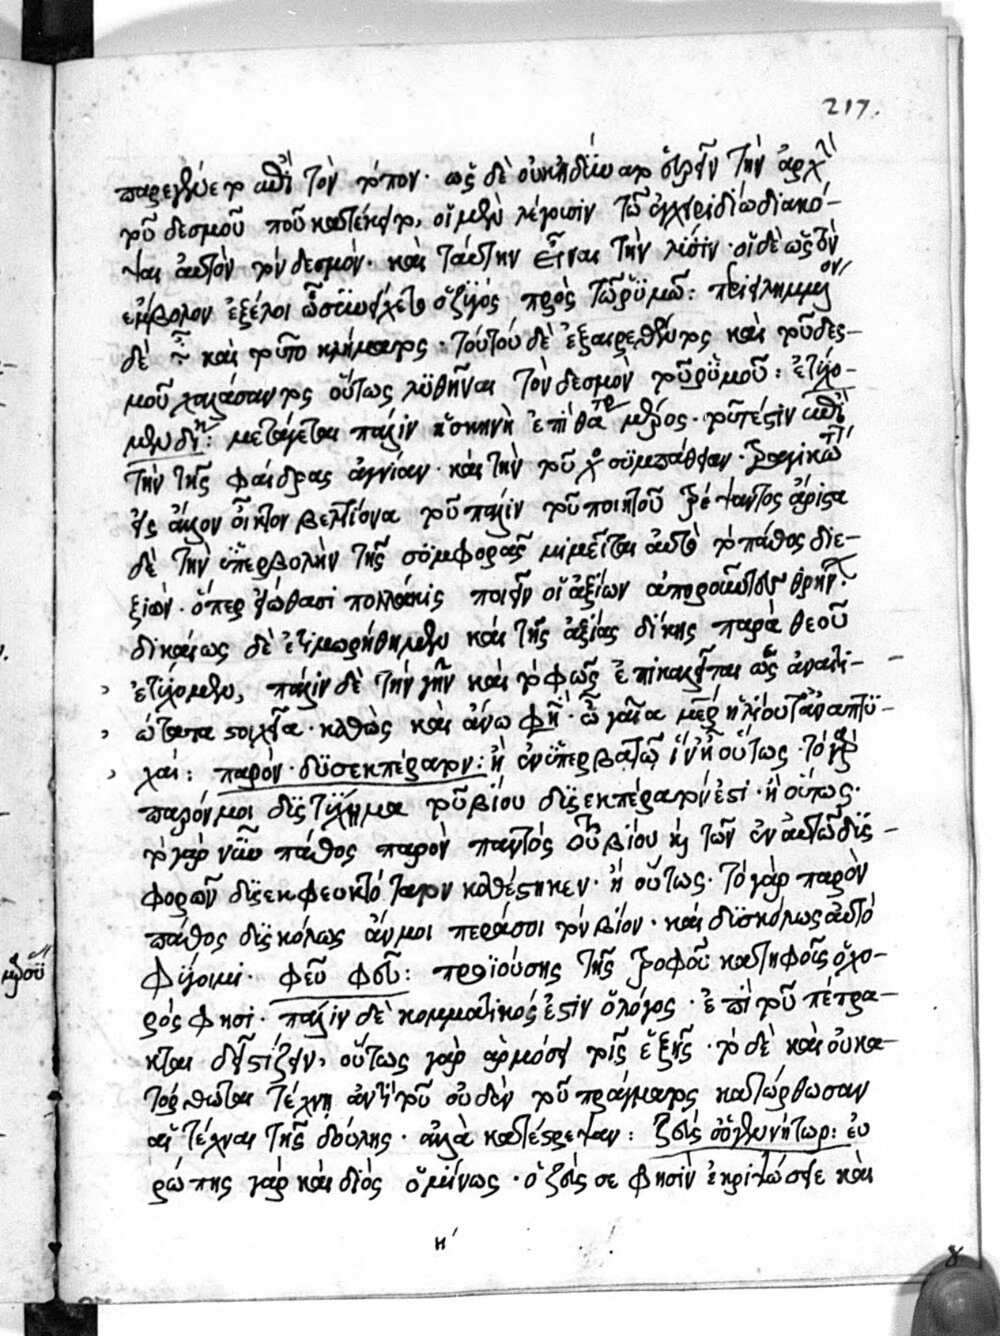 217.
παρεγένετο κατὰ τὸν τόπον· ὡς δὲ οὐκ ἠδύνατο εὑρεῖν τὴν ἀρχὴν
τοῦ δεσμοῦ ποῦ κατέκειτο, οἱ μὲν λέγουσιν τῷ ἐγχειριδίῳ διακό-
ψαι αὐτὸν τὸν δεσμόν· καὶ ταύτην εἶναι τὴν λύσιν· οἱ δὲ ὡς τὸν
ἔμβολον ἐξέλοι ᾧ συνείχετο ὁ ζυγὸς πρὸς τῷ ῥυμῷ: περιειλημμένον
δὲ καὶ τοῦτο κλήματος· τούτου δὲ ἐξαιρεθέντος καὶ τοῦ δεσ-
μοῦ χαλάσαντος οὕτως λυθῆναι τὸν δεσμὸν τοῦ ῥυμοῦ: ἐτύχο-
μεν δίκης: μετάγεται πάλιν ἡ σκηνὴ ἐπὶ θάτερον μέρος· τουτέστιν κατὰ
τὴν τῆς φαίδρας ἄγνοιαν· καὶ τὴν τοῦ χοροῦ συμπάθειαν· τραγικωτέρως
εἰς ἄλλον οἶκτον βελτίονα τοῦ πάλιν τοῦ ποιητοῦ τρέψαντος ἄριστα
δὲ τὴν ὑπερβολὴν τῆς συμφορᾶς μιμεῖται αὐτὸ τὸ πάθος διε-
ξιών· ὅπερ εἰώθασι πολλάκις ποιεῖν οἱ ἀξίων ἀποροῦντες θρήνων
δικαίως δὲ ἐτιμωρήθημεν καὶ τῆς ἀξίας δίκης παρὰ θεοῦ
ἐτύχομεν, πάλιν δὲ τὴν γῆν καὶ τὸ φῶς ἐπικαλεῖται ὡς ἀναιτι-
ώτατα στοιχεῖα· καθὼς καὶ ἄνω φησίν· ὦ γαῖα μῆτερ ἡλίου τ᾽ ἀναπτυ-
χαί: παρὸν· δυσεκπέρατον: ἢ ἐν ὑπερβατῷ ἵν᾽ ᾖ οὕτως· τὸ γὰρ
παρόν μοι δυστύχημα τοῦ βίου δυσεκπέρατόν ἐστι· ἢ οὕτως·
τὸ γὰρ νῦν πάθος παρὸν παντὸς τοῦ βίου καὶ τῶν ἐν αὐτῷ δυς-
φορῶν δυσεκφευκτότατον καθέστηκεν· ἢ οὕτως· τὸ γὰρ παρὸν
πάθος δυσκόλως ἄν μοι περάσοι τὸν βίον· καὶ δυσκόλως αὐτὸ
φύγοιμι· φεῦ φεῦ: προϊούσης τῆς τροφοῦ κατηφοῦς ὁ χο-
ρός φησι· πάλιν δὲ κομματικός ἐστιν ὁ λόγος· ἐπὶ τοῦ πέπρα-
κται δεῖ στίζειν, οὕτως γὰρ ἁρμόσει τοῖς ἑξῆς· τὸ δὲ καὶ οὐ κα-
τόρθωται τέχνη ἀντὶ τοῦ οὐδὲν τοῦ πράγματος κατώρθωσαν
αἱ τέχναι τῆς δούλης· ἀλλὰ κατέστρεψαν: ζεύς σ᾽ ὁ γεννήτωρ: εὐ
ρώπης γὰρ καὶ διὸς ὁ μίνως· ὁ ζεύς σε φησὶν ἐκριζώσειε καὶ
η΄
8